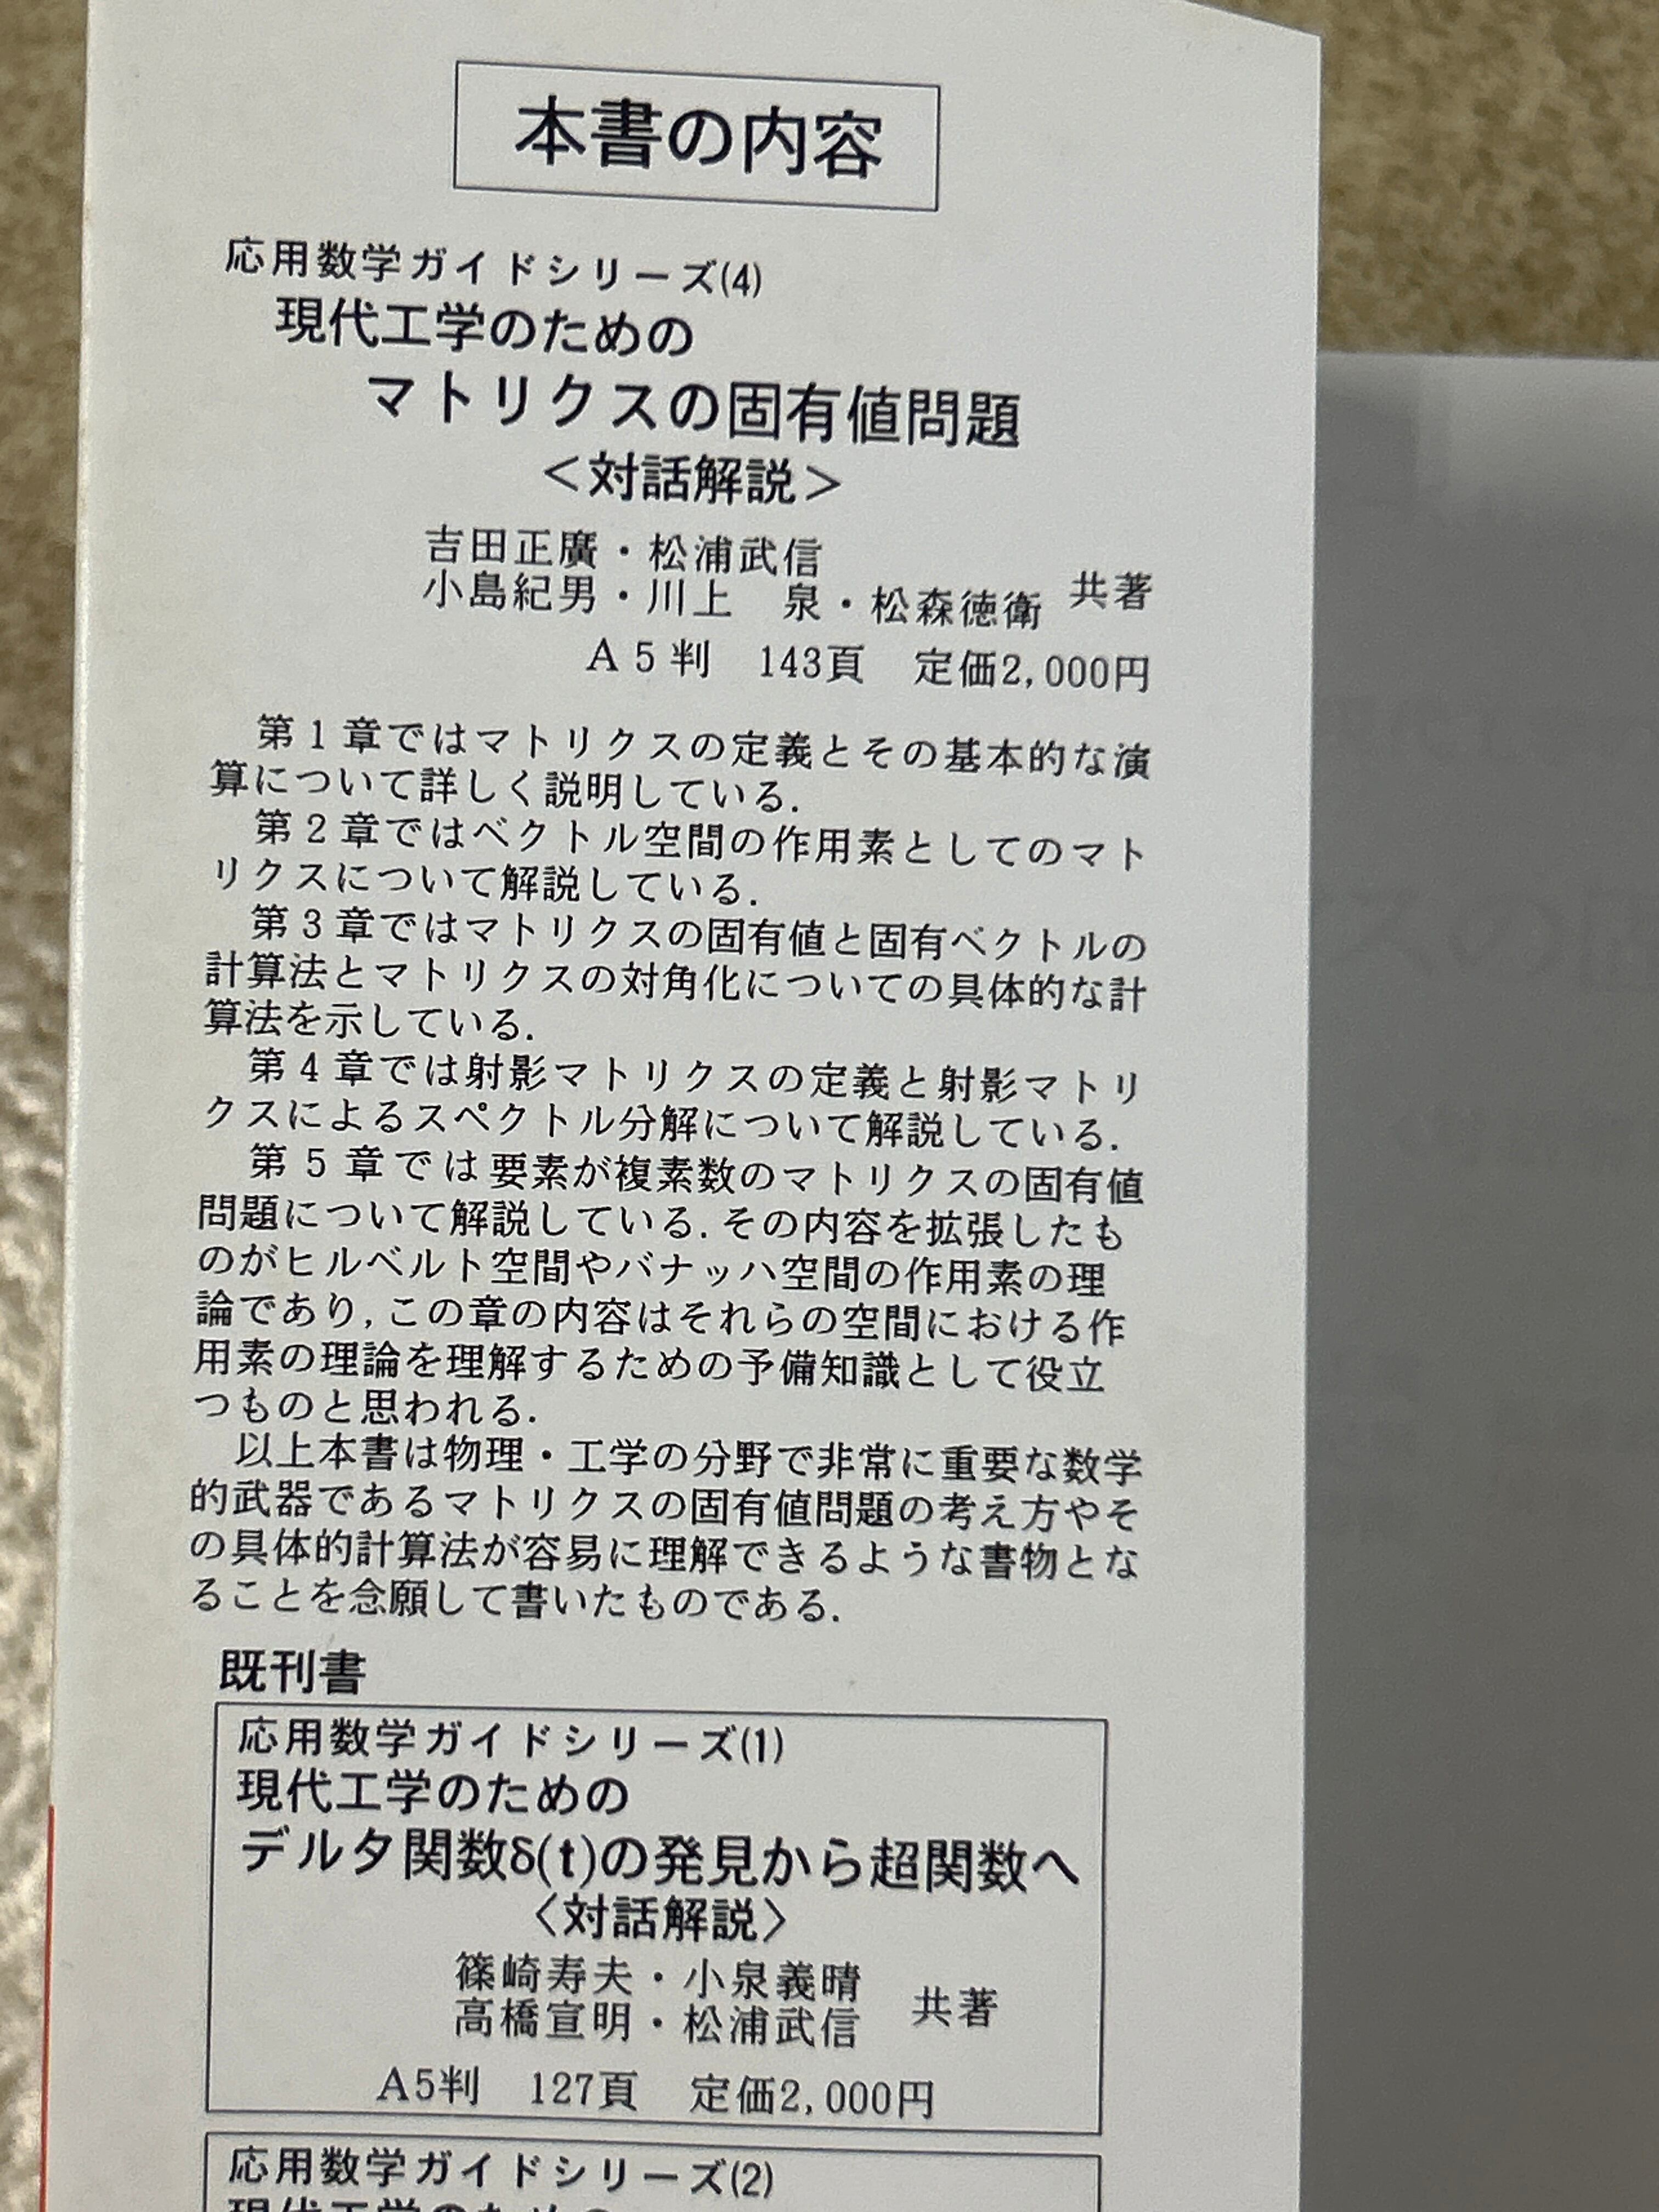 本書の内容
応用数学ガイドシリーズ(4)
現代工学のための
マトリクスの固有値問題
＜対話解説＞
吉田正廣・松浦武信
小島紀男・川上　泉・松森徳衛 共著
A 5 判　143頁　定価2,000円
第 1 章ではマトリクスの定義とその基本的な演
算について詳しく説明している.
第 2 章ではベクトル空間の作用素としてのマト
リクスについて解説している.
第 3 章ではマトリクスの固有値と固有ベクトルの
計算法とマトリクスの対角化についての具体的な計
算法を示している.
第 4 章では射影マトリクスの定義と射影マトリ
クスによるスペクトル分解について解説している.
第 5 章では要素が複素数のマトリクスの固有値
問題について解説している. その内容を拡張したも
のがヒルベルト空間やバナッハ空間の作用素の理
論であり, この章の内容はそれらの空間における作
用素の理論を理解するための予備知識として役立
つものと思われる.
以上本書は物理・工学の分野で非常に重要な数学
的武器であるマトリクスの固有値問題の考え方やそ
の具体的計算法が容易に理解できるような書物とな
ることを念願して書いたものである.
既刊書
応用数学ガイドシリーズ(1)
現代工学のための
デルタ関数δ(t)の発見から超関数へ
〈対話解説〉
篠崎寿夫・小泉義晴
高橋宣明・松浦武信 共著
A5判　127頁　定価2,000円
応用数学ガイドシリーズ(2)
現代工学のための